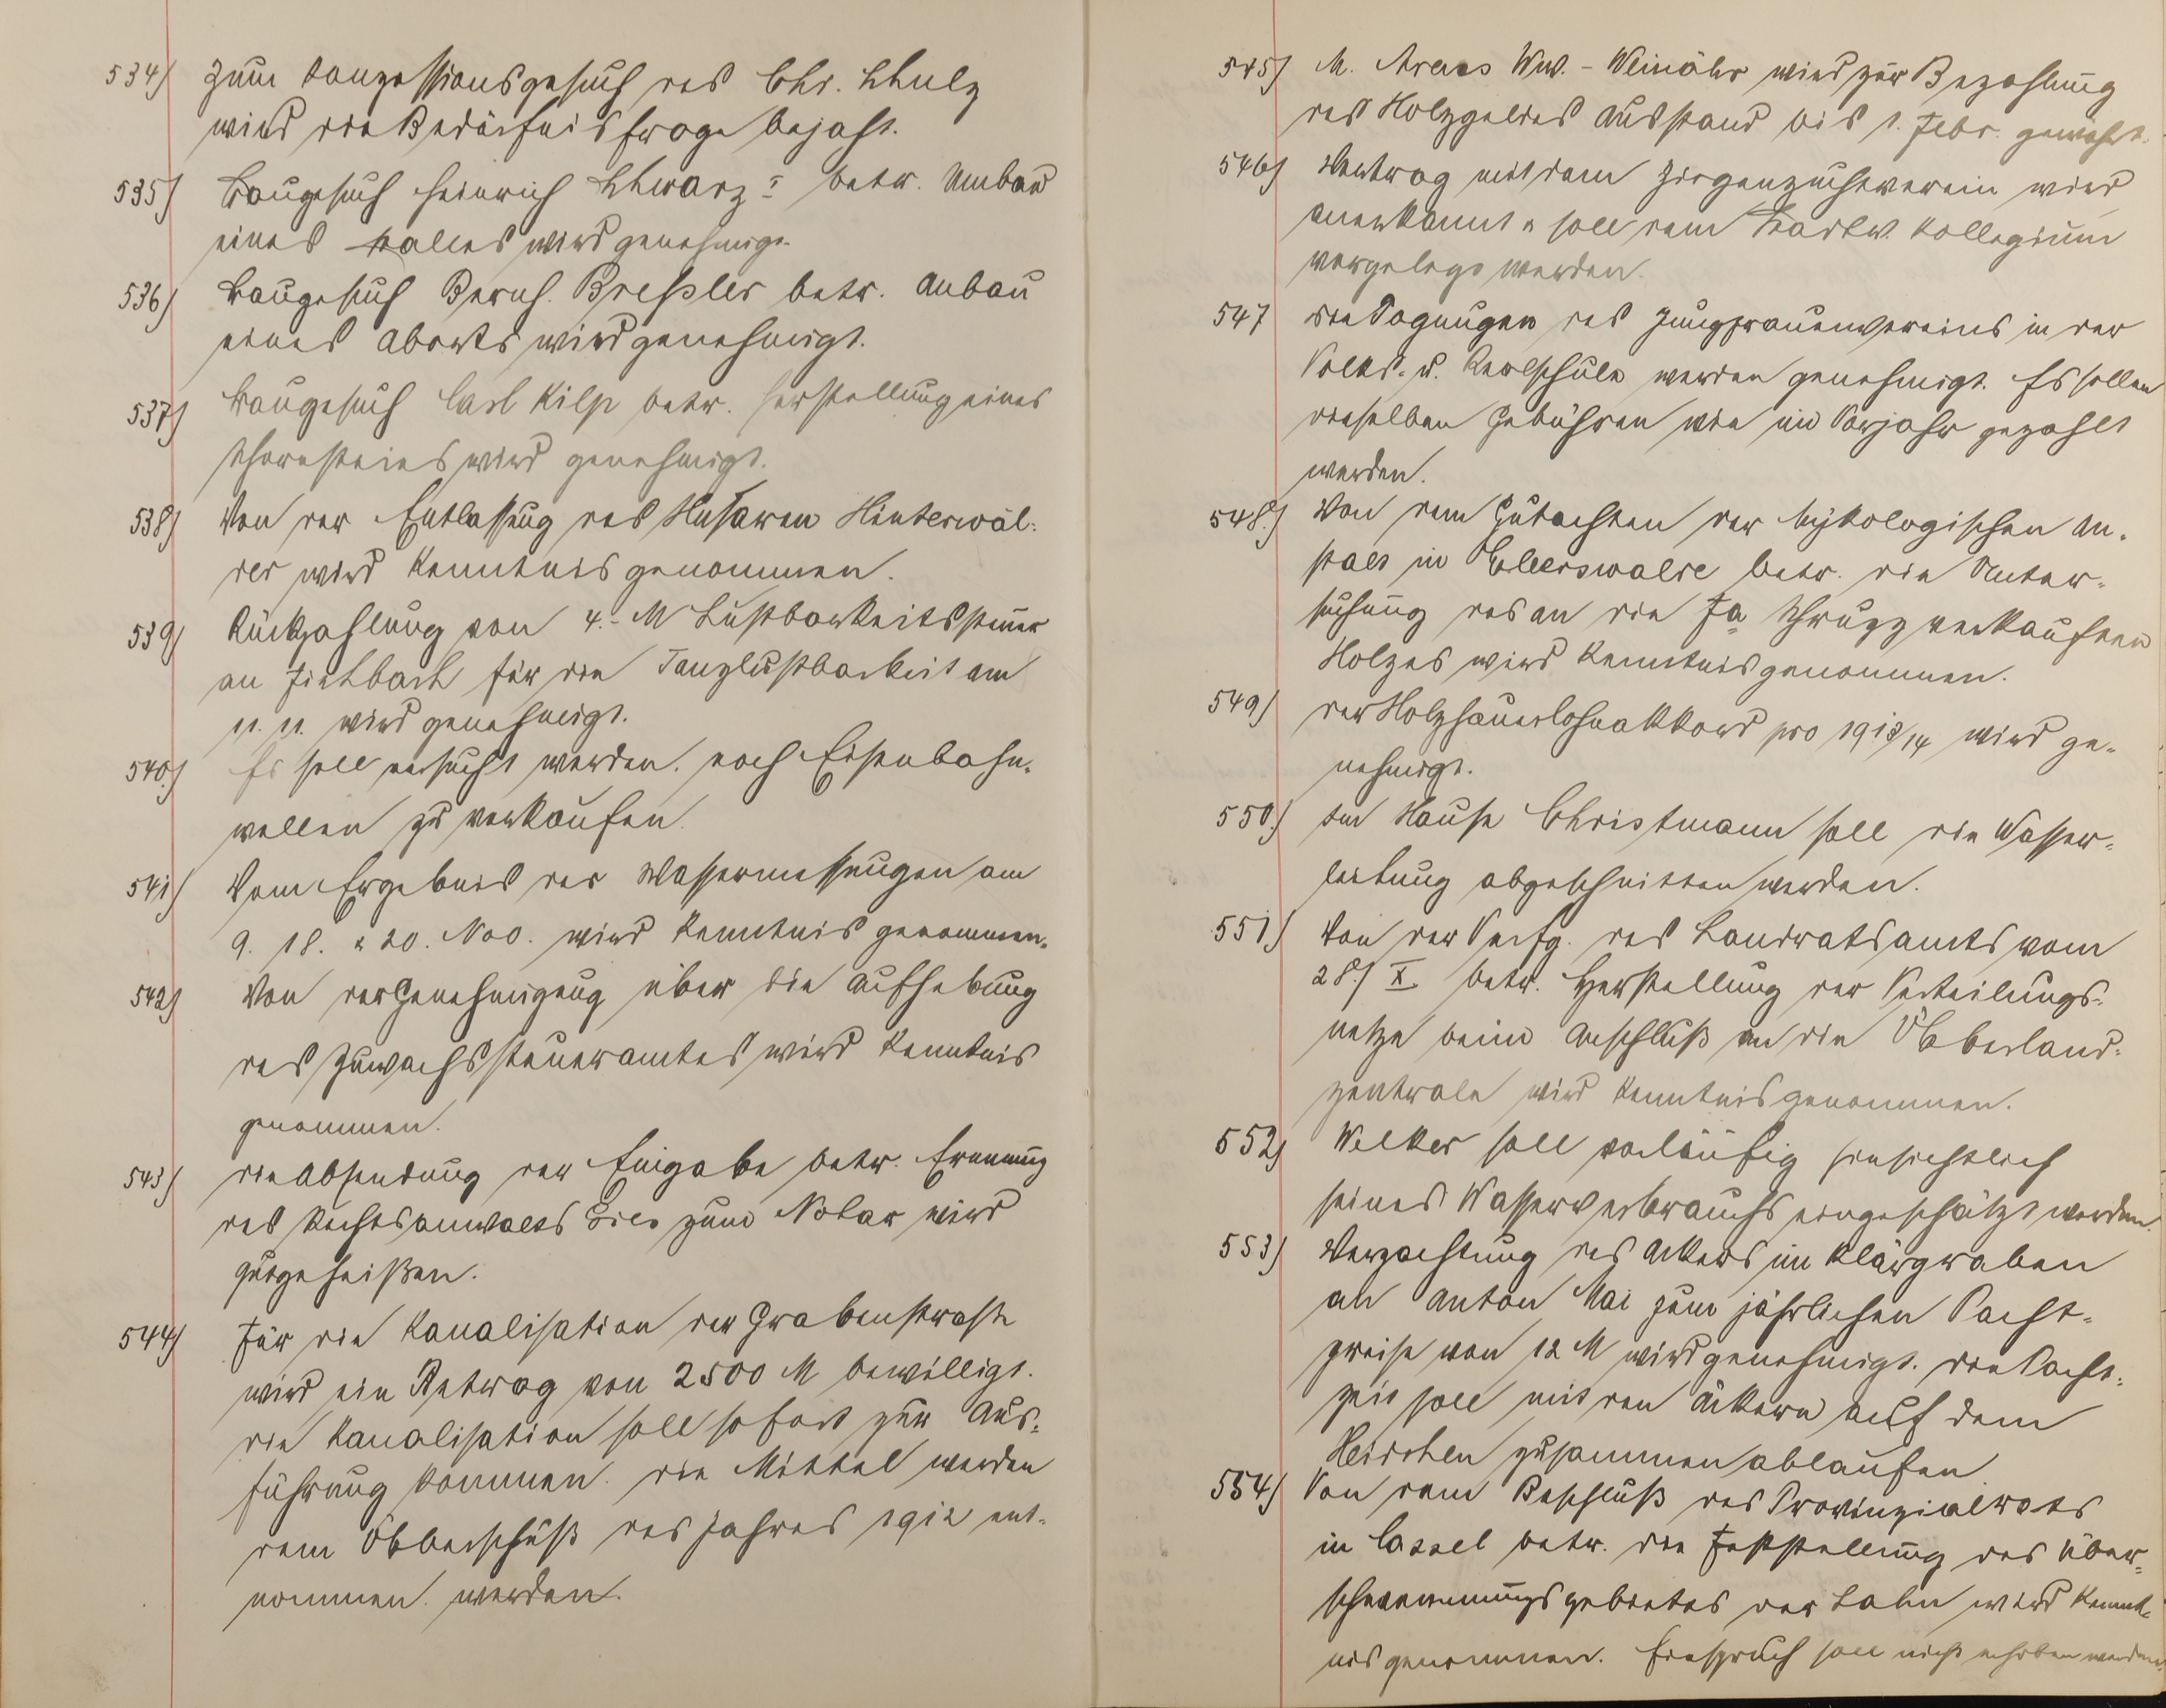 534) Zum Konzessionsgesuch des Chr. Schulz
wird die Bedürfnisfrage bejaht.
535) Baugesuch Heinrich Schwarz I betr. Umbau
eines Stalles wird genehmigt.
536) Baugesuch Bernh. Bressler betr. Anbau
eines Aborts wird genehmigt.
537) Baugesuch Carl Kilp betr. Herstellung eines
Schornsteins wird genehmigt.
538) Von der Entlassung des Husaren Hinterwäl-
der wird Kenntnis genommen.
539) Rückzahlung von 4.- M Lustbarkeitssteuer
an Fischbach für die Tanzlustbarkeit am
11. 11. wird genehmigt.
540.) Es soll versucht werden, noch Eisenbahn-
wellen zu verkaufen.
541) Vom Ergebnis der Wassermessungen am
9. 18. & 20. Nov. wird Kenntnis genommen.
542) Von der Genehmigung über die Aufhebung
des Zuwachssteueramtes wird Kenntnis
genommen.
543) die Absendung der Eingabe betr. Ernennung
des Rechtsanwalts zum Notar wird
gutgeheißen.
544) Für die Kanalisation der Grabenstrasse
wird ein Betrag von 2500 M bewilligt.
die Kanalisation soll sofort zur Aus-
führung kommen. die Mittel werden
dem Überschuß des Jahres 1912 ent-
nommen werden.
545) M. Wwe. - Weinähr wird zur Bezahlung
des Holzgeldes Ausstand bis 1. Febr. gewährt.
546) Vertrag mit dem Ziegenzuchtverein wird
anerkannt & soll dem Stadtv. Kollegium
vorgelegt werden.
547 die Tagungen des Jungfrauenvereins in der
Volks- u. Realschule werden genehmigt. Es sollen
dieselben Gebühren wie im Vorjahr gezahlt
werden.
548.) Von dem Gutachten der Mykologischen An-
stalt in Eberswalde betr. die Unter-
suchung des an die Fa verkauften
Holzes wird Kenntnis genommen.
549) der Holzhauerlohnakkord pro 1913/14 wird ge-
nehmigt.
550.) Im Hause Christmann soll die Wasser-
leitung abgeschnitten werden.
551) Von der Verfg. des Landratsamts vom
28./X. betr. Herstellung der Verteilungs-
netze beim Anschluß an die Überland-
zentrale wird Kenntnis genommen.
552) Welker soll vorläufig hinsichtlich
seines Wasserverbrauchs eingeschätzt werden.
553) Verpachtung des Ackers im Klärgraben
an Anton Mai zum jährlichen Pacht-
preise von 12 M wird genehmigt. die Pacht-
zeit soll mit den Äckern auf dem
zusammen ablaufen.
554) Von dem Beschluß des Provinzialrats
in Cassel betr. die Feststellung des Über-
schwemmungsgebietes der Lahn wird Kennt-
nis genommen. Einspruch soll nicht erhoben werden.